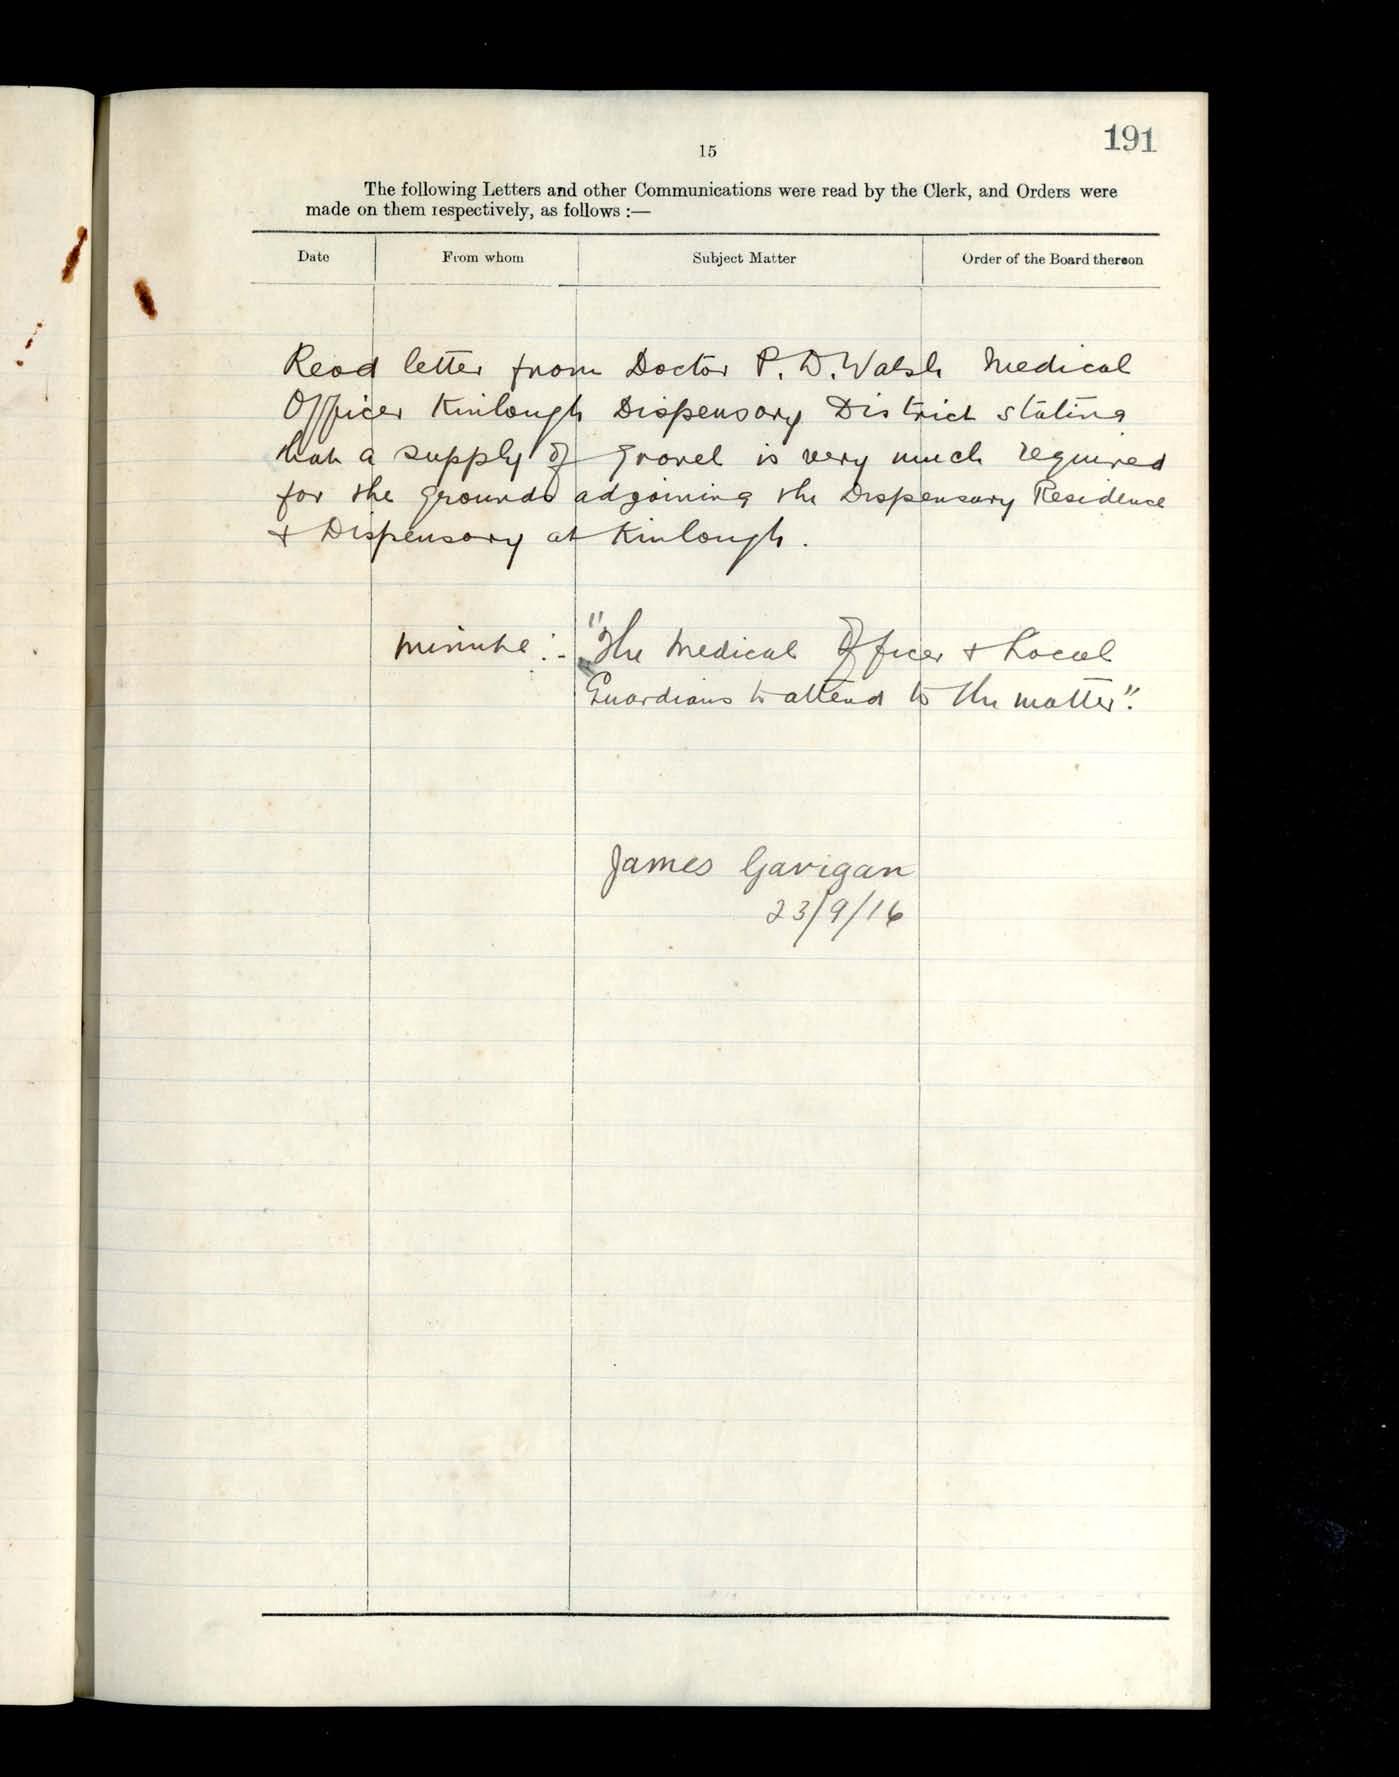 191
15
The following Letters and other Communications were read by the Clerk, and Orders were
made on them respectively, as follows :—
Date From whom Subject Matter Order of the Board thereon
Read letter from Doctor P. D. Walsh Medical
Officer Kinlough Dispensary District stating
that a supply of gravel is very much required
for the grounds adjoining the Dispensary Residence
& Dispensary at Kinlough.
Minute :- "The Medical Officer & Local
Guardians to attend to the matter".
James Gavigan
23/9/16